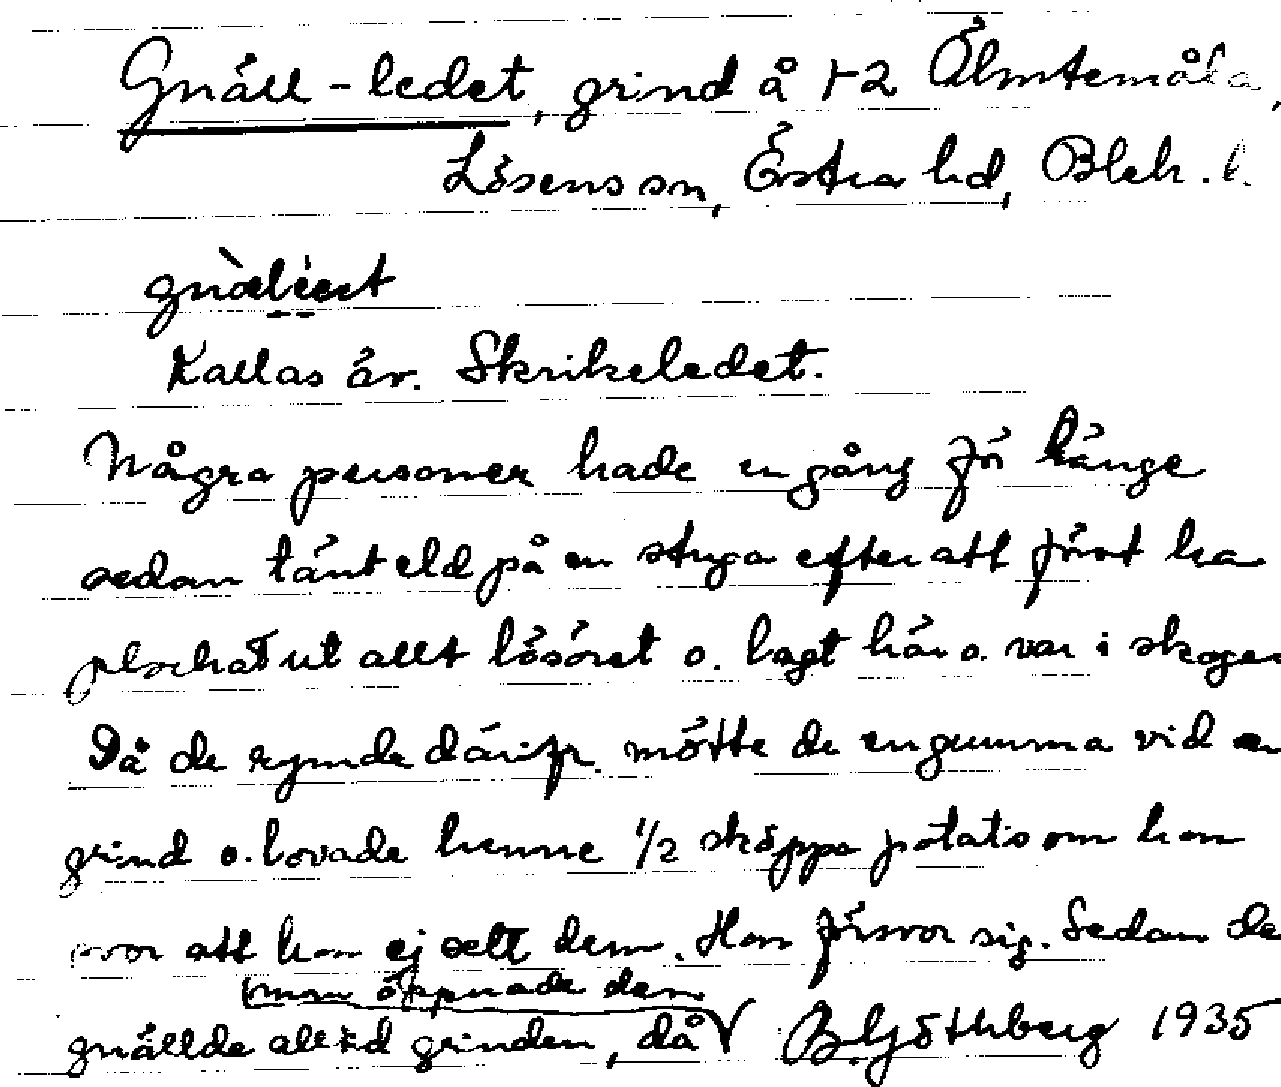 Gnäll-ledet, grind å 1-2 Älmtemåla,
Lösens sn, Östra hd, Blek. l.
Kallas äv. Skrikeledet.
Några personer hade en gång för länge
sedan tänt eld på en stuga efter att först ha
plockat ut allt lösöret o. lagt här o. var i skogen
Då de rymde därifr. mötte de en gumma vid en
grind o. lovade henne 1/2 skäppa potatis om hon
svor att hon ej sett dem. Hon försvor sig. Sedan de
man öppnade den
gnällde alltid grinden, då B. Ljöthberg 1935